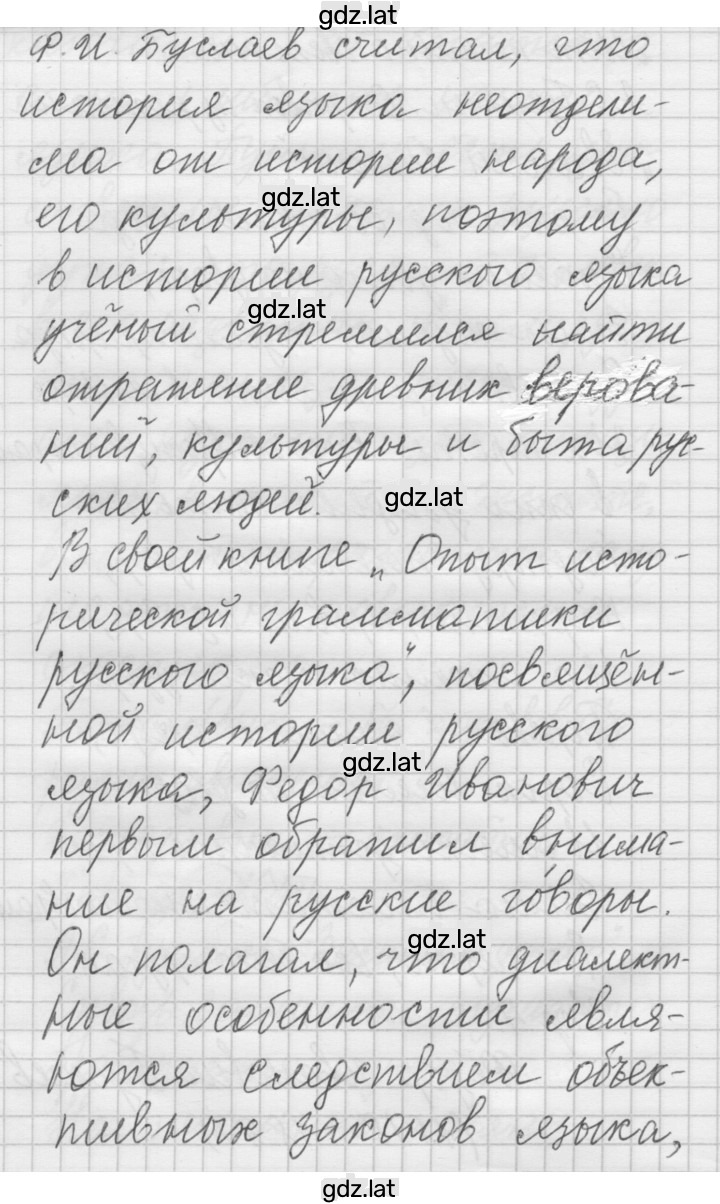 gdz.lat
Ф.И. Буслаев считал, что
история языка неотдели-
ма от истории народа,
gdz.lat
его культуры, поэтому
в истории русского языка
gdz.lat
учёный стремился найти
отражение древних верова-
ний, культуры и быта рус-
ских людей.
gdz.lat
В своей книге „Опыт исто-
рической грамматики
русского языка“, посвящён-
ной истории русского
gdz.lat
языка, Федор Иванович
первым обратил внима-
ние на русские го́воры.
gdz.lat
Он полагал, что диалект-
ные особенности явля-
ются следствием объек-
тивных законов языка,
gdz.lat